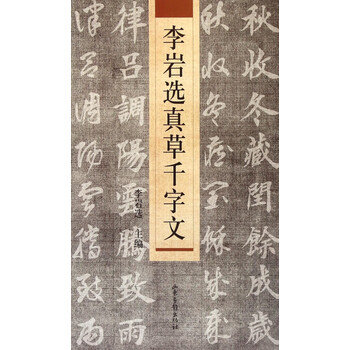 秋收冬藏閏餘成歲
秋收冬藏閏餘成歲
李岩选真草千字文
李岩选 主编
律呂調陽雲騰致雨
律呂調陽雲騰致雨